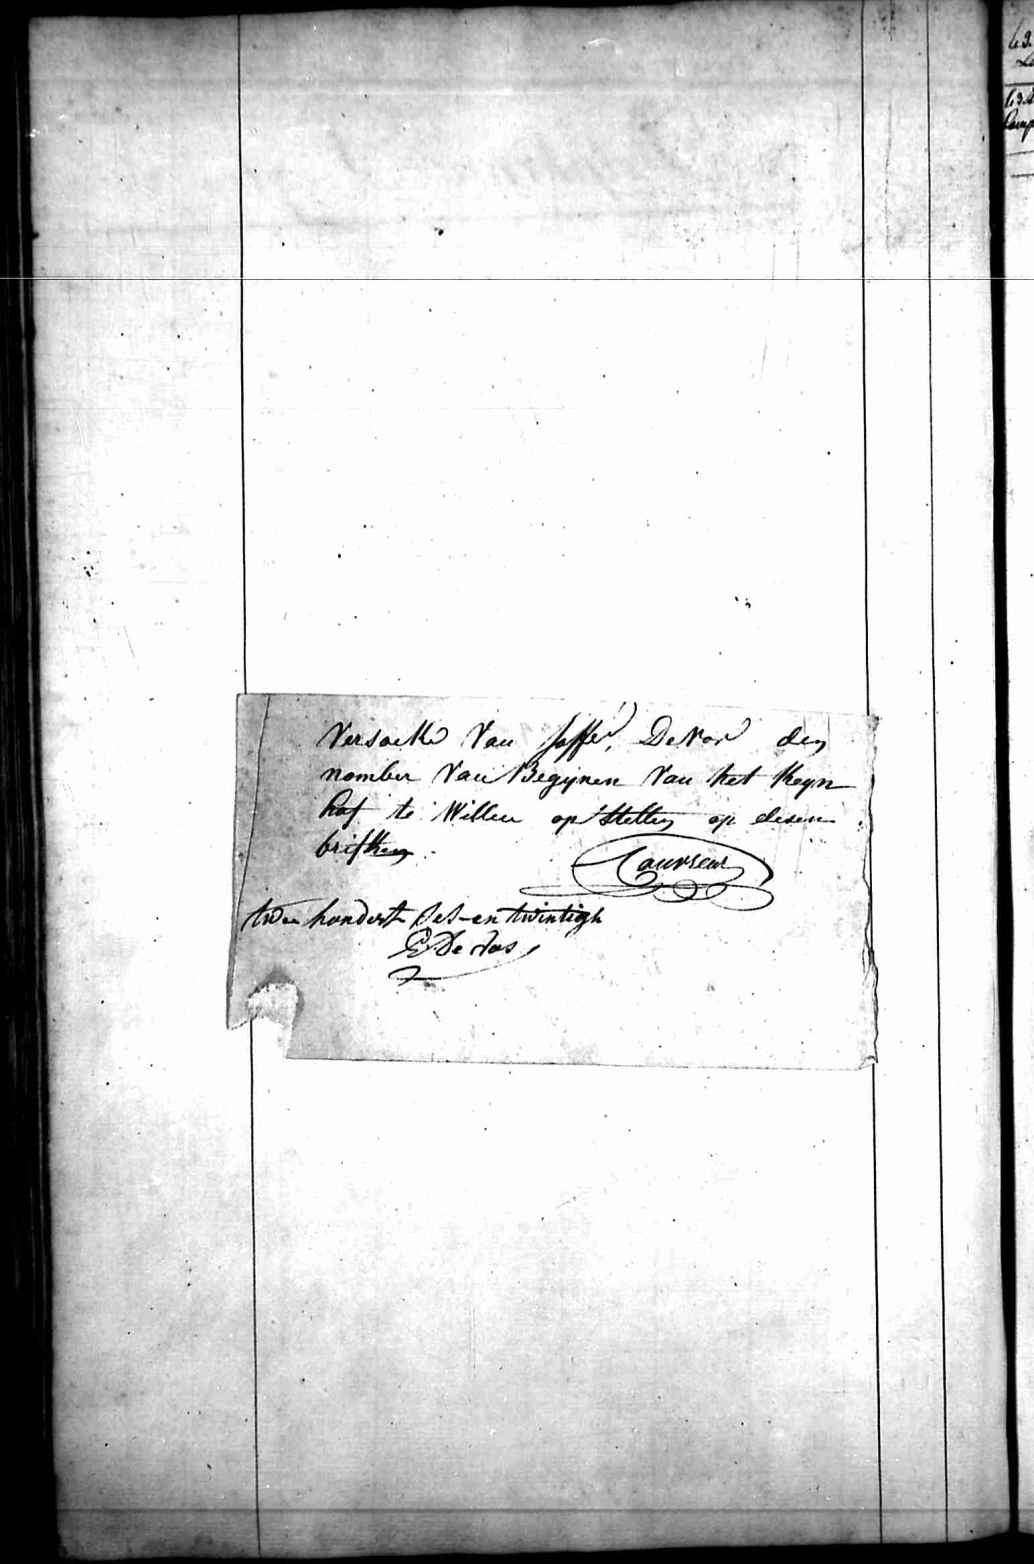 Versoeke van Joffer, De Vos den
nomber van Begijnen van het Begyn
hof te willen op stellen op desen
brifken.
Couvreur
twee hondert ses-en twintigh
E De Vos